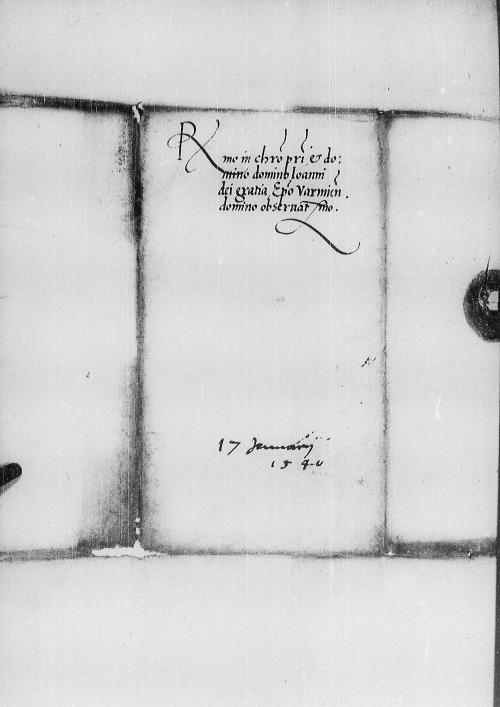 Rmo in chro pri & do:
mino domino Ioanni
dei gratia Epo Varmien.
domino observan mo.
17 Januarij
1540